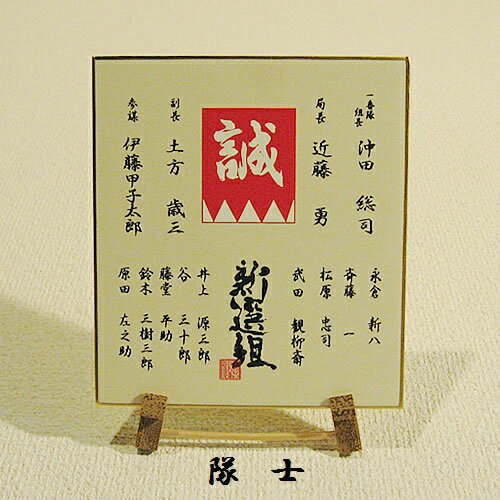 一番隊
組長
沖田 総司
局長
近藤 勇
誠
副長
土方 歳三
参謀
伊藤甲子太郎
永倉 新八
斉藤 一
松原 忠司
武田 観柳斎
新選組
井上 源三郎
谷 三十郎
藤堂 平助
鈴木 三樹三郎
原田 左之助
隊 士